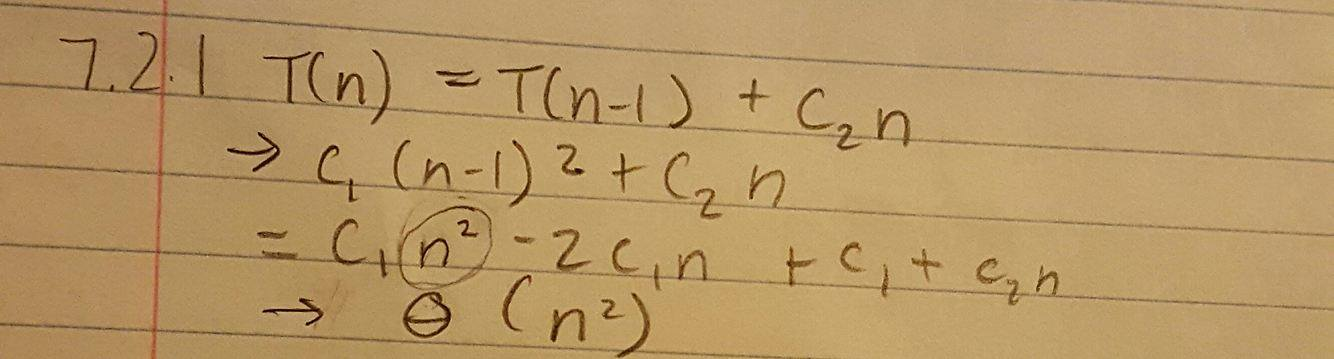 7.2.1 T(n) = T(n-1) + C₂n
→ C₁ (n-1)² + C₂ n
= C₁ n² - 2C₁n + C₁ + C₂n
→ Θ (n²)